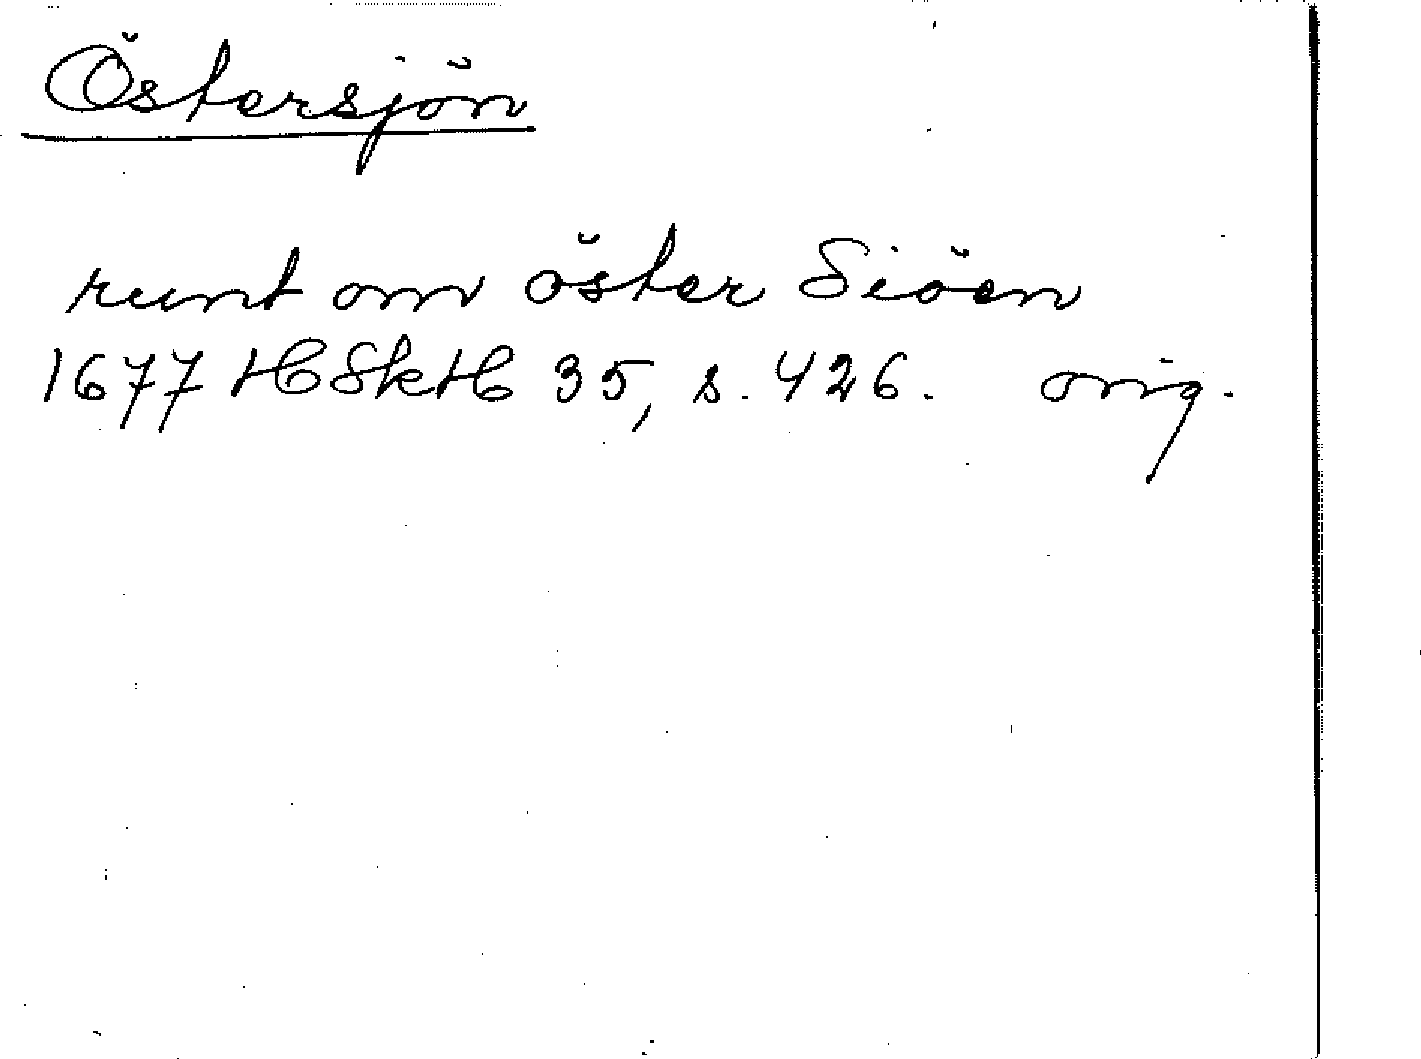 Östersjön
runt om öster Siöen
1677 HSkH 35, s. 426. orig.